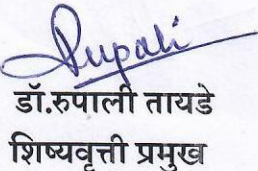 Rupali
डॉ.रुपाली तायडे
शिष्यवृत्ती प्रमुख